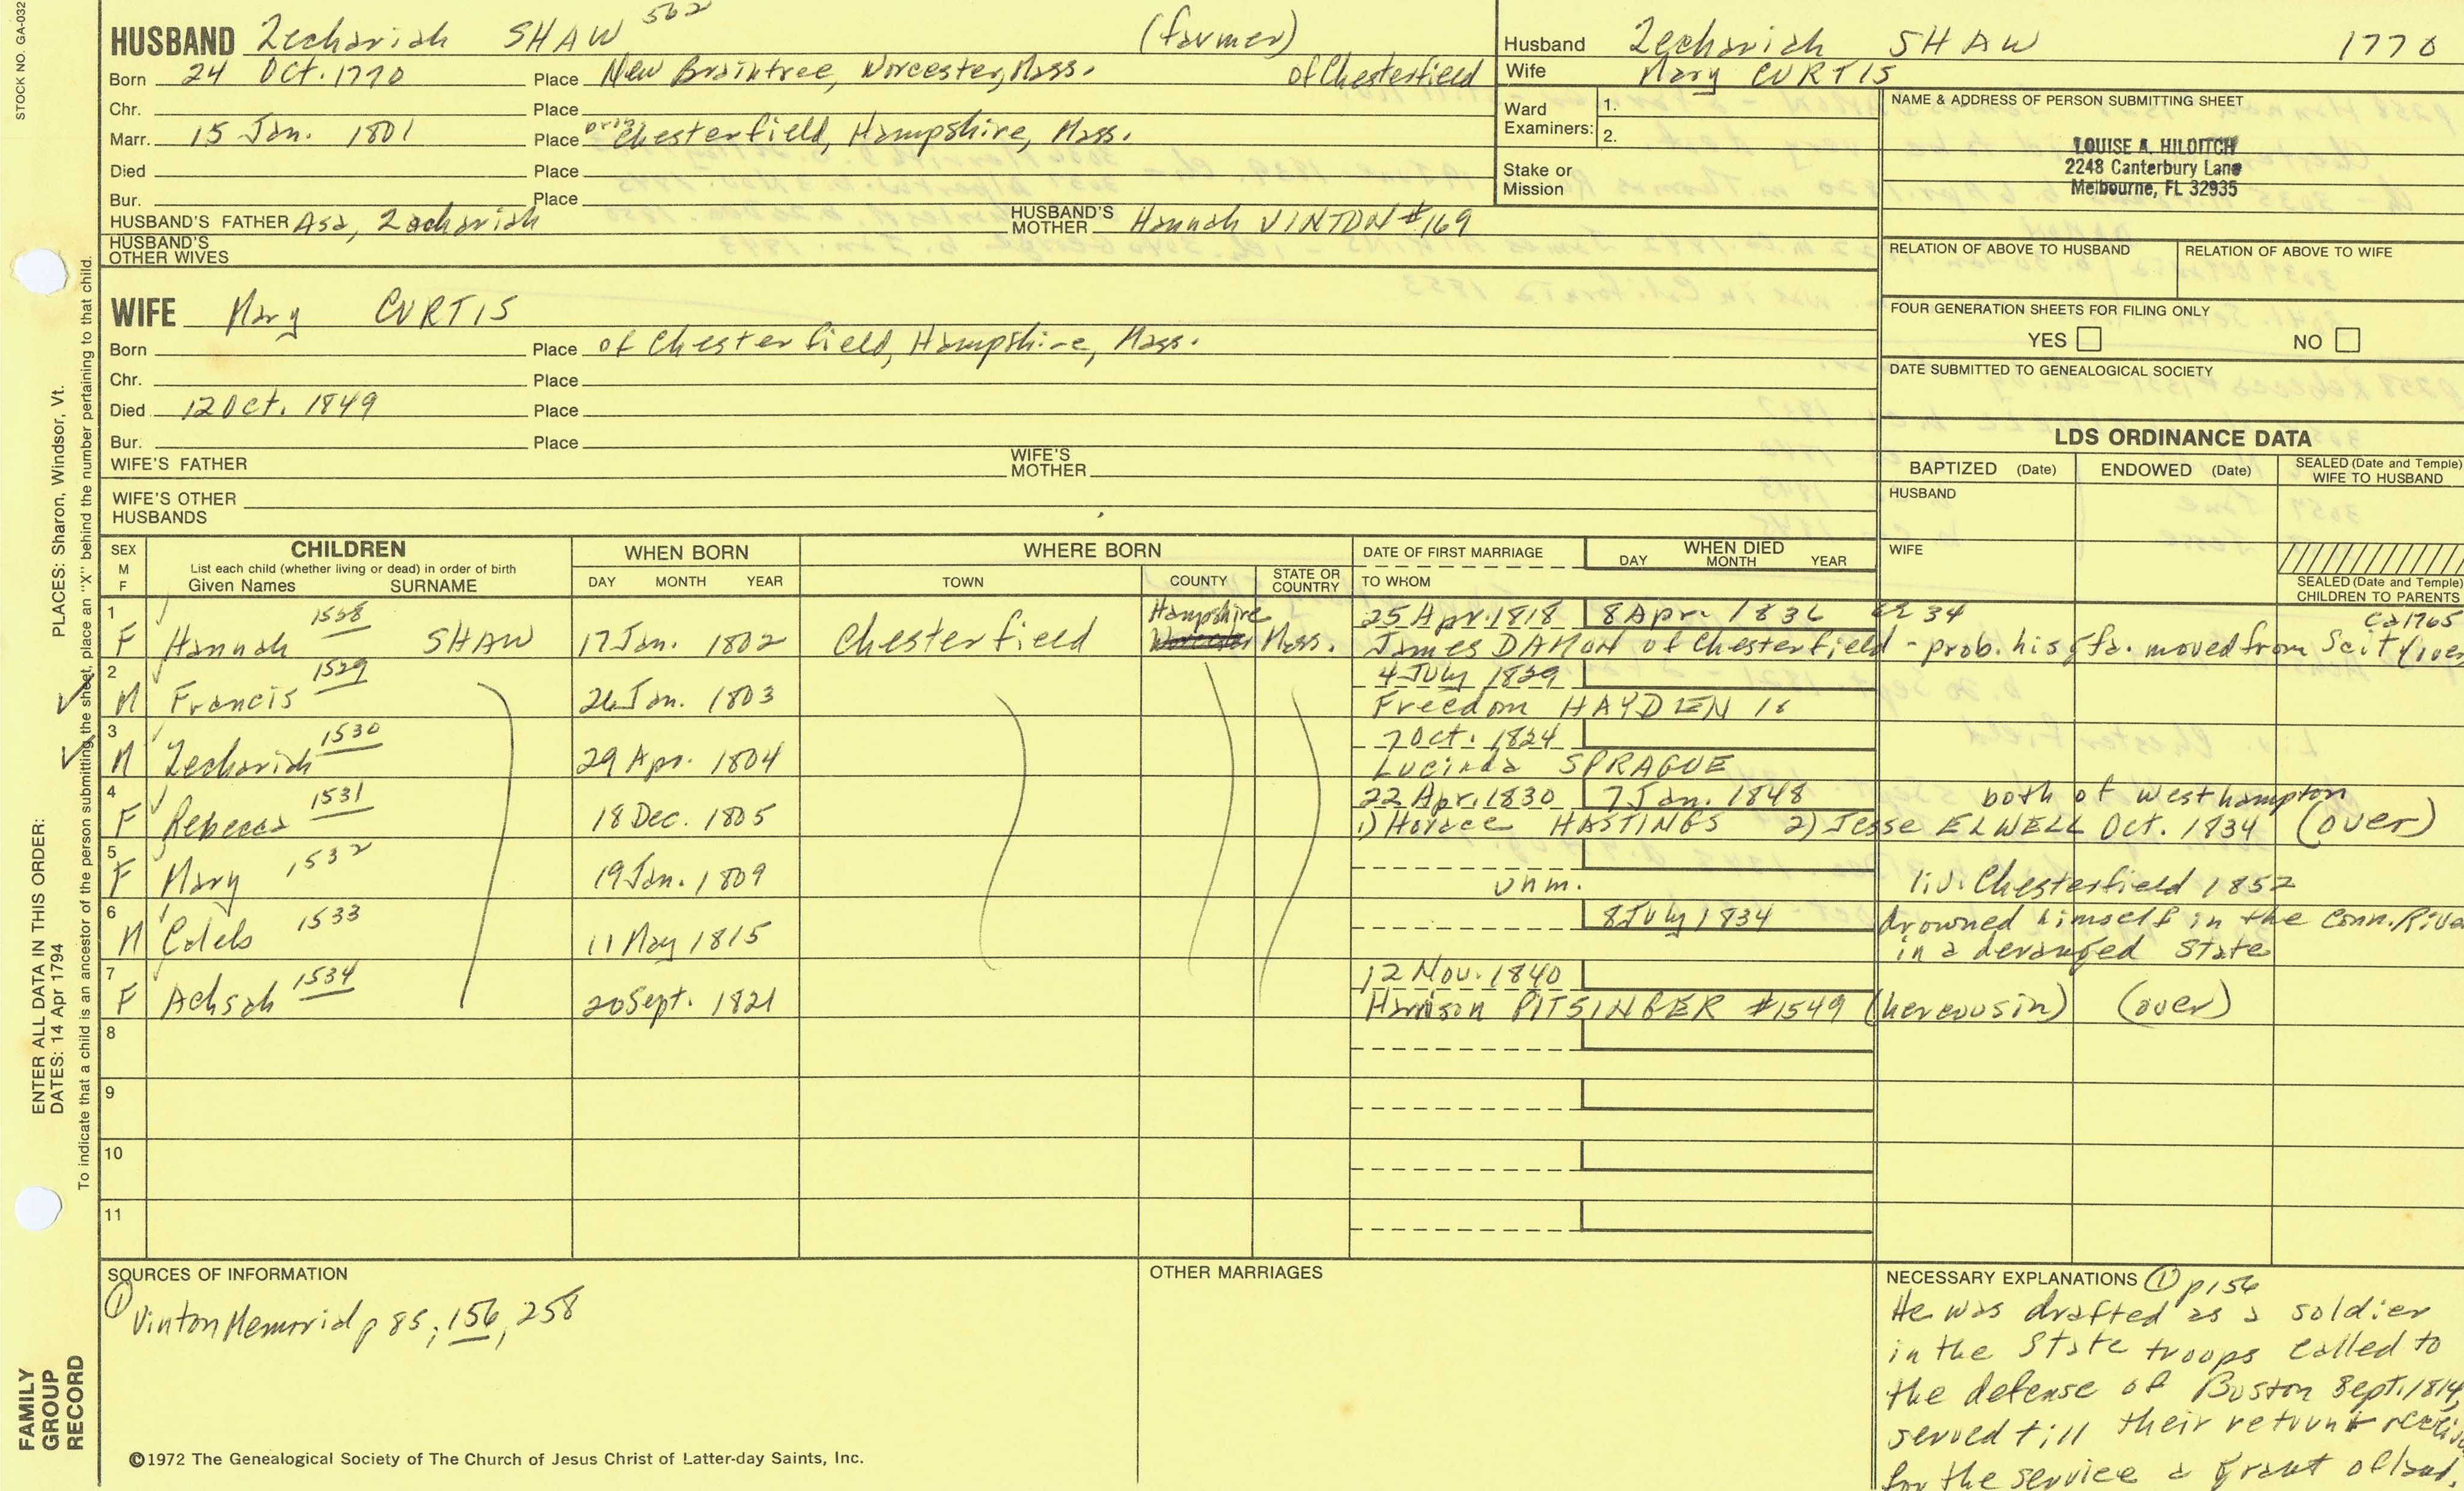 STOCK NO. GA-032
HUSBAND Zechariah SHAW 562 (farmer)
Born 24 Oct. 1770 Place New Braintree, Worcester, Mass. of Chesterfield
Chr. Place
Marr. 15 Jan. 1801 Place prob. Chesterfield, Hampshire, Mass.
Died Place
Bur. Place
HUSBAND'S FATHER Asa, Zachariah HUSBAND'S MOTHER Hannah VINTON #169
HUSBAND'S OTHER WIVES
Husband Zechariah SHAW 1770
Wife Mary CURTIS
Ward Examiners: 1.
2.
Stake or Mission
NAME & ADDRESS OF PERSON SUBMITTING SHEET
LOUISE A. HILDITCH
2248 Canterbury Lane
Melbourne, FL 32935
RELATION OF ABOVE TO HUSBAND RELATION OF ABOVE TO WIFE
FOUR GENERATION SHEETS FOR FILING ONLY
YES NO
DATE SUBMITTED TO GENEALOGICAL SOCIETY
WIFE Mary CURTIS
Born Place of Chesterfield, Hampshire, Mass.
Chr. Place
Died 12 Oct. 1849 Place
Bur. Place
WIFE'S FATHER WIFE'S MOTHER
WIFE'S OTHER HUSBANDS
LDS ORDINANCE DATA
BAPTIZED (Date) ENDOWED (Date) SEALED (Date and Temple) WIFE TO HUSBAND
HUSBAND
WIFE
SEALED (Date and Temple) CHILDREN TO PARENTS
SEX M F
CHILDREN
List each child (whether living or dead) in order of birth
Given Names SURNAME
WHEN BORN
DAY MONTH YEAR
WHERE BORN
TOWN COUNTY STATE OR COUNTRY
DATE OF FIRST MARRIAGE
TO WHOM
WHEN DIED
DAY MONTH YEAR
1 1528 Hampshire 25 Apr. 1818 8 Apr. 1836 ae 34 ca 1765
F Hannah SHAW 17 Jan. 1802 Chesterfield Worcester Mass. James DAMON of Chesterfield - prob. his gfa. moved from
2 1529 4 July 1829
M Francis 26 Jan. 1803 Freedom HAYDEN
3 1530 7 Oct. 1824
M Zechariah 29 Apr. 1804 Lucinda SPRAGUE
4 1531 22 Apr. 1830 7 Jan. 1848 both of Westhampton
F Rebecca 18 Dec. 1805 1) Horace HASTINGS 2) Jesse ELWELL Oct. 1834 (over)
5 1532
F Mary 19 Jan. 1809 unm. liv. Chesterfield 1852
6 1533 8 July 1834 drowned himself in the Conn. Rive
M Caleb 11 May 1815 in a deranged state
7 1534 12 Nov. 1840
F Achsah 20 Sept. 1821 Harrison PITSINGER #1549 (her cousin) (over)
8
9
10
11
SOURCES OF INFORMATION
① Vinton Memorial p 85; 156, 258
OTHER MARRIAGES
NECESSARY EXPLANATIONS ① p 156
He was drafted as a soldier
in the State troops called to
the defense of Boston Sept. 1814,
served till their return +
for the service a grant of land.
©1972 The Genealogical Society of The Church of Jesus Christ of Latter-day Saints, Inc.
FAMILY GROUP RECORD
ENTER ALL DATA IN THIS ORDER:
DATES: 14 Apr 1794 PLACES: Sharon, Windsor, Vt.
To indicate that a child is an ancestor of the person submitting the sheet, place an "X" behind the number pertaining to that child.